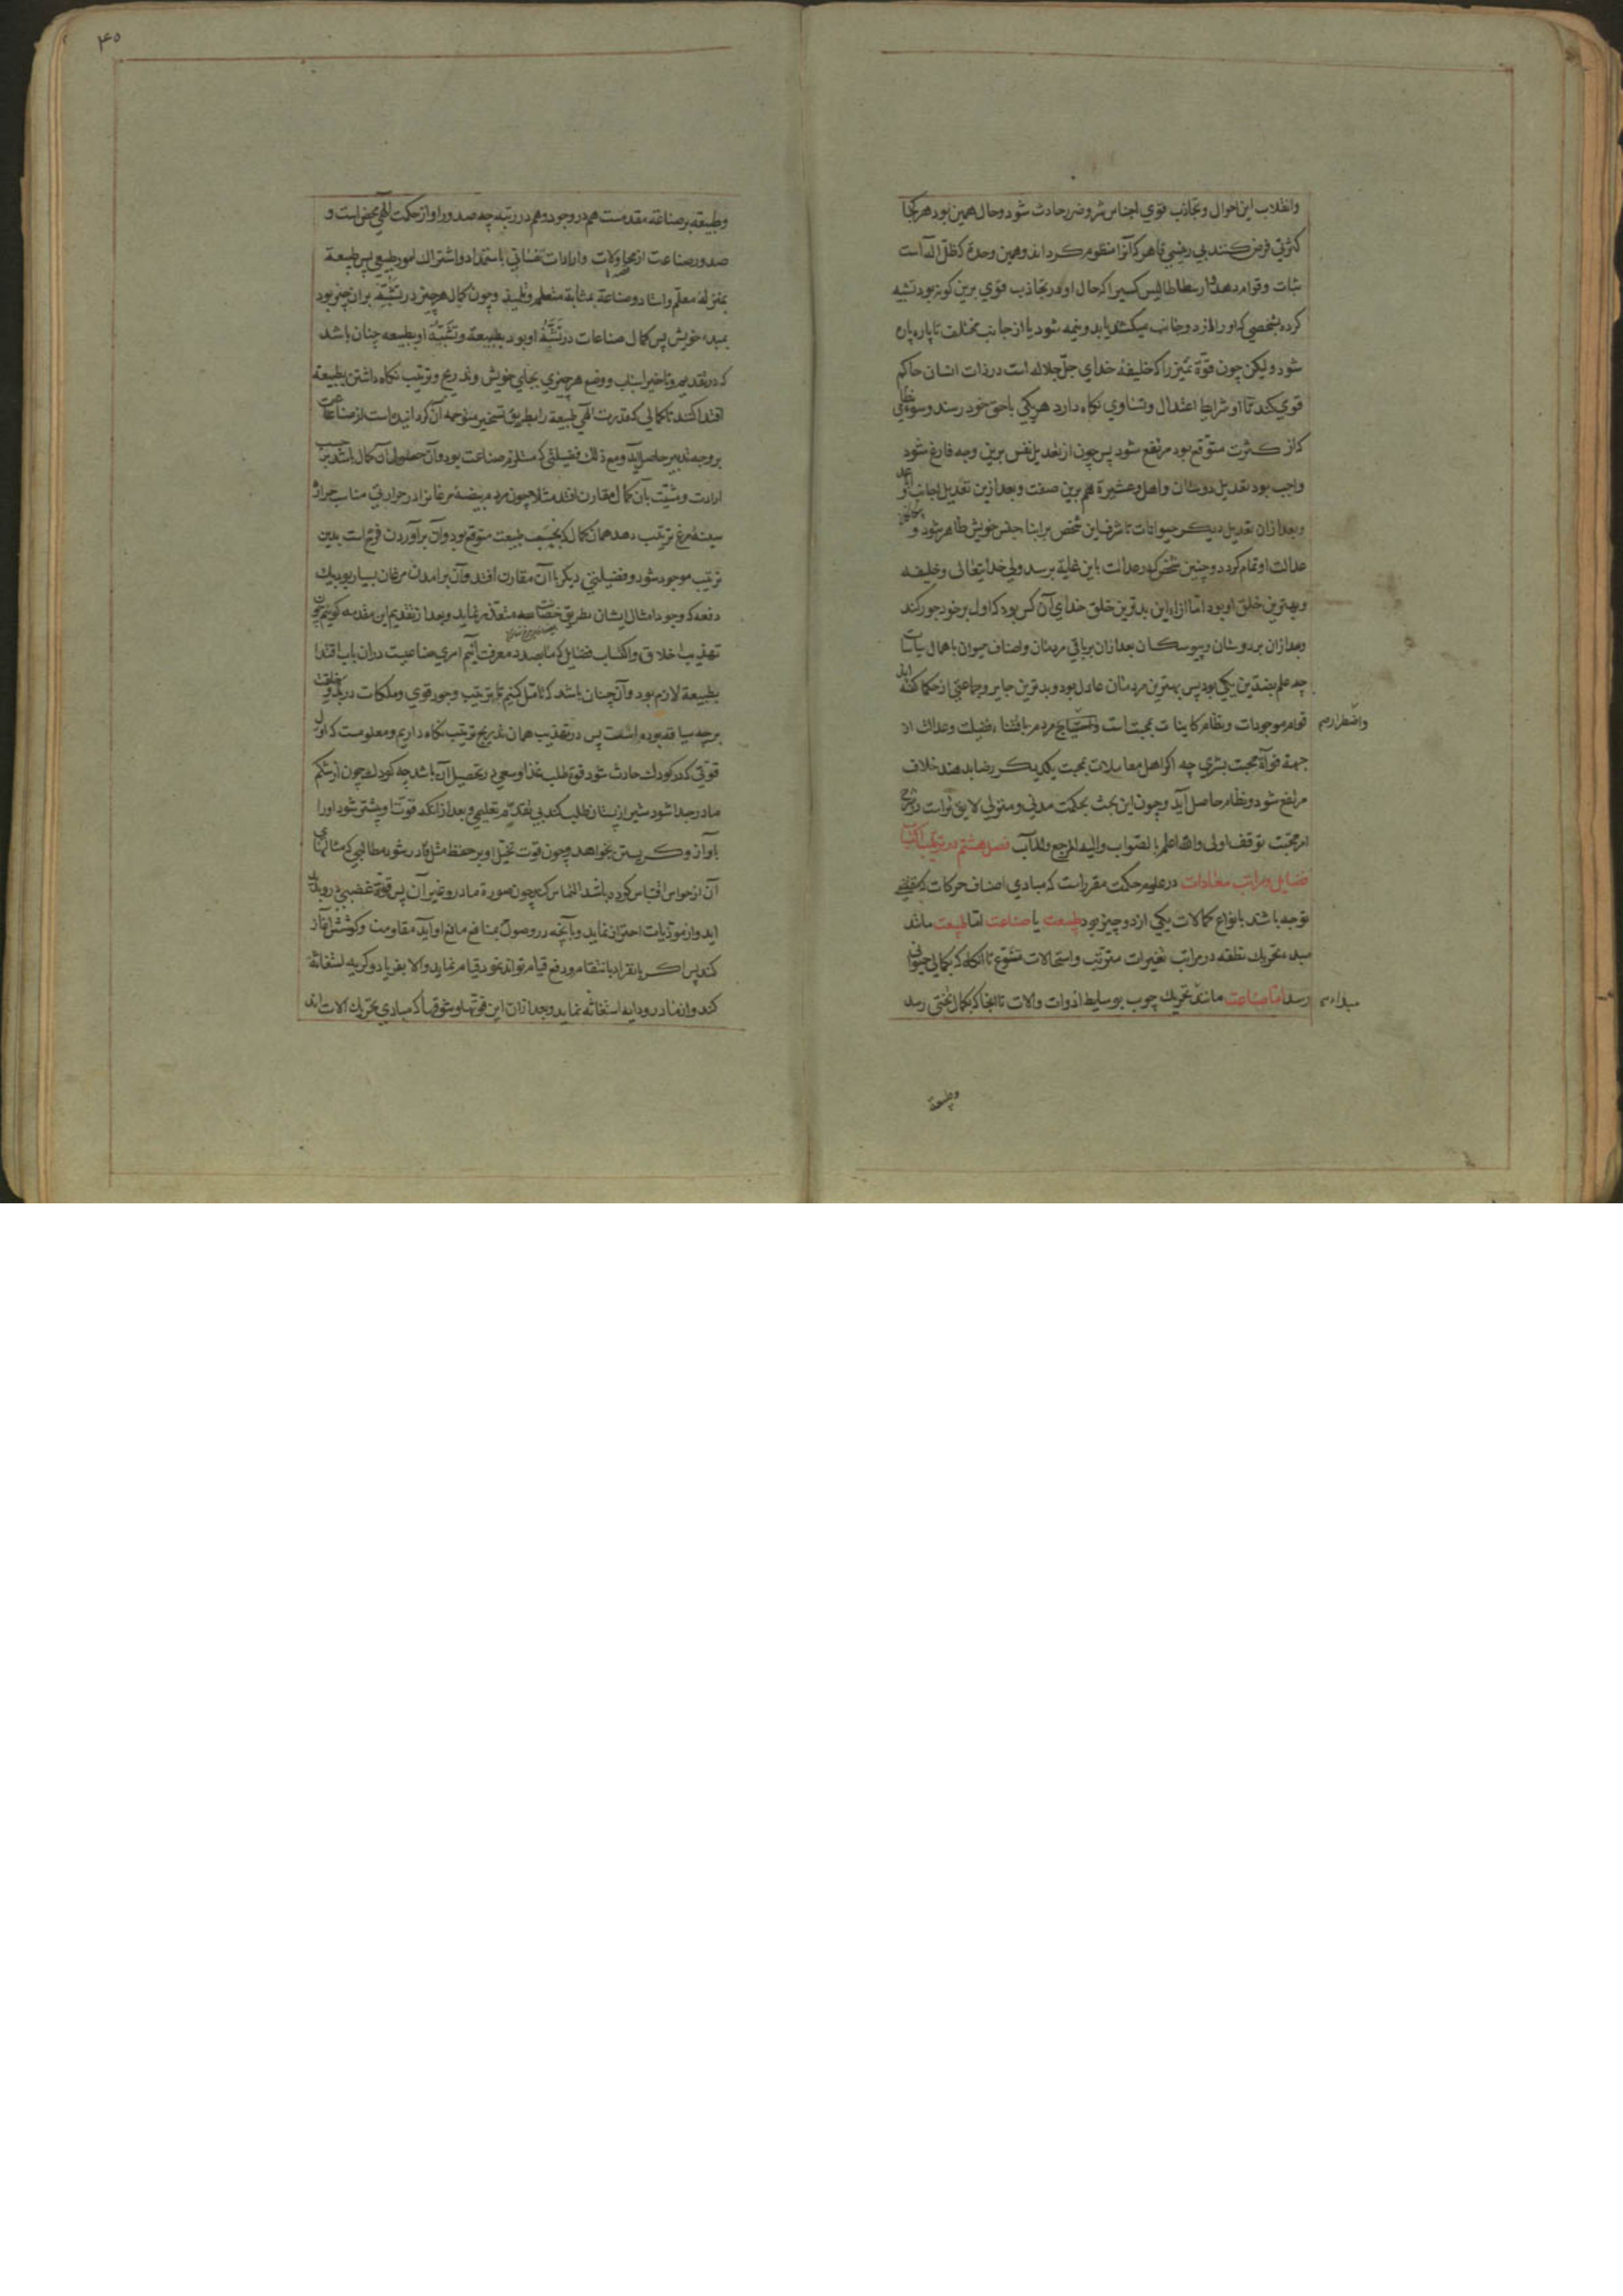 وانقلاب این احوال و تجاذب قوی اجناس شر و ضرر حادث شود و حال همین بود هر کجا
کثرتی فرض کنند بی رئیسی قاهر که آنرا منظوم کرداند و همین وحدة که ظلّ اله است
ثبات وقوام دهد و ارسطاطالیس کسیرا که حال او در تجاذب قوی برین کونه بود تشبیه
کرده بشخصی که او را از دو جانب میکشند تا بدو نیمه شود یا از جانب مختلف تا پاره پاره
شود ولیکن چون قوّة تمیز را که خلیفهٔ خدای جلّ جلاله است در ذات انسان حاکم
قوی کند تا او شرایط اعتدال و تساوی نکاه دارد هر یکی با حق خود رسند و سوء نظامی
که از کثرت متوقّع بود مرتفع شود پس چون از تعدیل نفس برین وجه فارغ شود
واجب بود تعدیل دوستان واهل وعشیرة هم برین صفت و بعد ازین تعدیل اجانب و اباعد
و بعد ازان تعدیل دیکر حیوانات تا شرف این شخص بر ابنا جنس خویش ظاهر شود و
عدالت او تمام کردد و چنین شخص که در عدالت باین غایة برسد ولی خدایتعالی وخلیفه
و بهترین خلق او بود اما ازاء این بدترین خلق خدای آن کس بود که اول بر خود جور کند
و بعد ازان بر دوستان و پیوستکان بعد ازان بر باقی مردمان و اصناف حیوان باهمال سیاسات
چه علم بضدّین یکی بود پس بهترین مردمان عادل بود و بدترین جایر و جماعتی از حکما کفته اند
قوام موجودات و نظام کاینات بمحبت است و احتیاج مردم باقتناء فضیلت وعدالت از
واضطرار صح
جهة فوات محبت بشری چه اکر اهل معاملات بمحبت یکدیکر رضا بدهند خلاف
مرتفع شود و نظام حاصل آید و چون این بحث بحکمت مدنی و منزلی لایق تر است در شرح
امر محبت توقف اولی والله اعلم بالصواب والیه المرجع والمآب فصل هشتم در ترتیب اکتساب
فضایل و مراتب سعادات در علوم حکمت مقرر است که مبادی اصناف حرکات که مقتضی
توجه باشند بانواع کمالات یکی از دو چیز بود طبیعت یا صناعت اما طبیعت مانند
مبدء تحریك نطفه در مراتب تغیرات مترتب و استحالات متنوّع تا آنکاه که بکمالی حیوانی
رسد اما صناعت مانند تحریك چوب بوسایط ادوات والات تا آنجا که بکمال تختی رسد
مبداء صح
وطبیعة
٤٥
وطبیعة بر صناعة مقدمست هم در وجود وهم در رتبه چه صدور او از حکمت الهی محض است و
صدور صناعت از محاولات و ارادات نفسانی باستمداد واشتراك امور طبیعی پس طبیعة
بمنزلهٔ معلّم و استاد و صناعة بمثابة متعلم و تلمیذ و چون کمال هر چیز در تشبّه بران چیز بود
بمبدء خویش پس کمال صناعات در تشبّه او بود بطبیعة و تشبّه او بطبیعه چنان باشد
که در تقدیم وتاخیر اسباب ووضع هر چیزی بجای خویش و تدریج و ترتیب نکاه داشتن بطبیعة
اقتدا کند تا کمالی که قدرت الهی طبیعة را بطریق تسخیر متوجه آن کردانیده است از صناعت
بر وجه تدبیر حاصل آید و مع ذلك فضیلتی که مستلزم صناعت بود وآن حصول آن کمال باشد بر حسب
ارادت و مشیّت بآن کمال مقارن افتد مثلا چون مردم بیضهٔ مرغانرا در حرارتی مناسب حرارت
سینهٔ مرغ ترتیب دهد همان کمال که بحسب طبیعت متوقع بود وآن برآوردن فرخ است بدین
ترتیب موجود شود و فضیلتی دیکر با آن مقارن افتد وآن برامدن مرغان بسیار بود بیك
دفعه که وجود امثال ایشان بطریق حضانت متعذر نماید و بعد از تقدیم این مقدمه کوییم چون
تهذیب اخلاق واکتساب فضایل که ما بصدد معرفت آنیم امری صناعیست دران باب اقتدا
بطبیعة لازم بود وآن چنان باشد که تامّل کنیم تا ترتیب وجود قوی وملکات در بدو خلقت
بر چه سیاقه بوده است پس در تهذیب همان تدریج و ترتیب نکاه داریم ومعلومست که اول
قوّتی که در کودك حادث شود قوة طلب غذا و سعی در تحصیل آن باشد چه کودك چون از شکم
مادر جدا شود شیر از پستان طلب کند بی تقدّم تعلیمی و بعد از آنکه قوت او بیشتر شود او را
بآواز و کریستن بخواهد و چون قوت تخیّل او بر حفظ مثل قادر شود مطالبی که مثالهای
آن از حواس اقتباس کرده باشد التماس کند چون صورة مادر و غیر آن پس قوة غضبی در و پدید
اید و از موذیات احتراز نماید و با آنچه در وصول بمنافع مانع او آید مقاومت و کوشش آغاز
کند پس اکر بانفراد بانتقام ودفع قیام تواند نمود قیام نماید والا بفریاد و کریه استغاثه
کند و از مادر و دایه استغاثه نماید و بعد ازان این قوتها و شوقها که مبادی تحریك الات اند